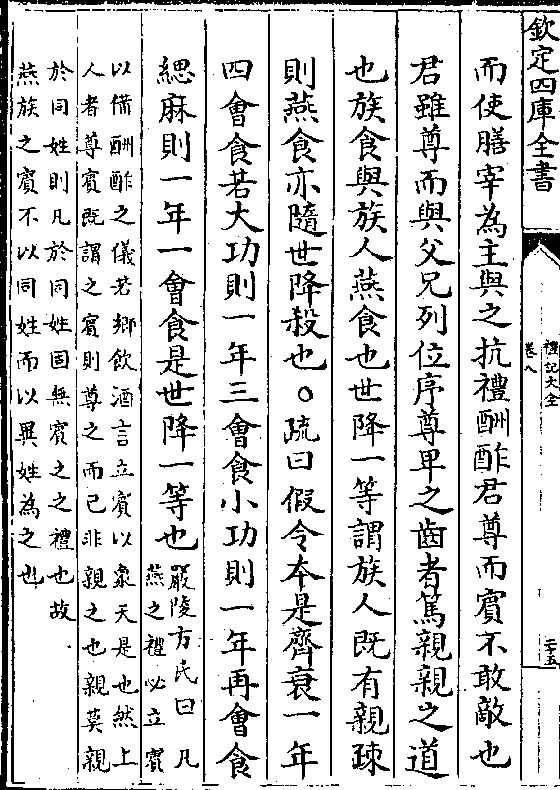 欽定四庫全書
禮記大全
卷八
二十五
而使膳宰為主與之抗禮酬酢君尊而賓不敢敵也
君雖尊而與父兄列位序尊卑之齒者篤親親之道
也族食與族人燕食也世降一等謂族人既有親疎
則燕食亦隨世降殺也。疏曰假令本是齊衰一年
四會食若大功則一年三會食小功則一年再會食
緦麻則一年一會食是世降一等也
嚴陵方氏曰凡
燕之禮必立賓
以備酬酢之儀若鄉飲酒言立賓以象天是也然上
人者尊賓既謂之賓則尊之而已非親之也親莫親
於同姓則凡於同姓固無賓之之禮也故
燕族之賓不以同姓而以異姓為之也